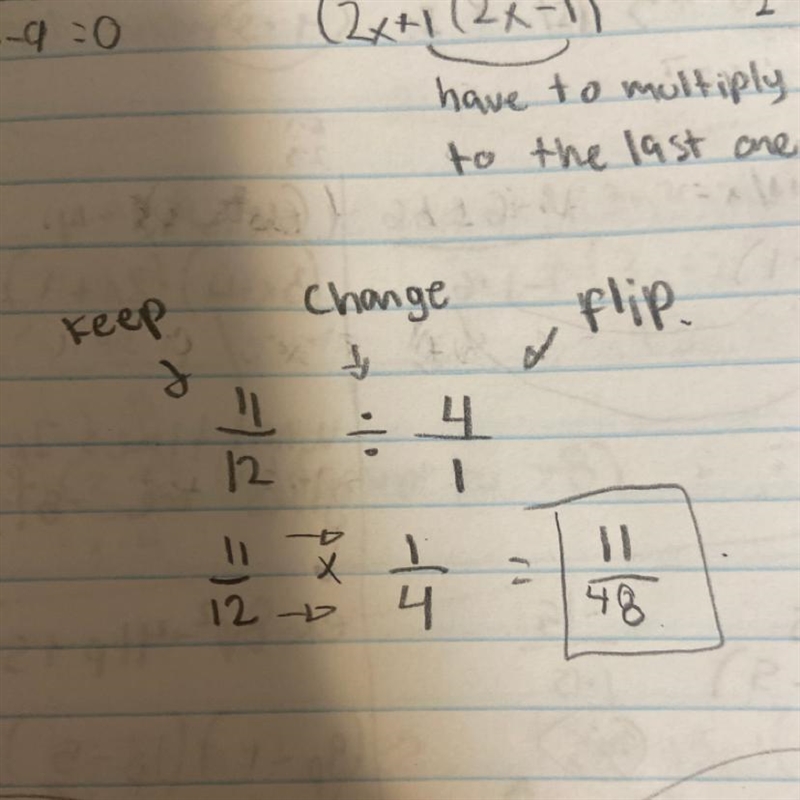 -9 = 0
(2x+1(2x-1)
have to multiply
to the last one
keep change flip.
11/12 ÷ 4/1
11/12 × 1/4 = 11/48